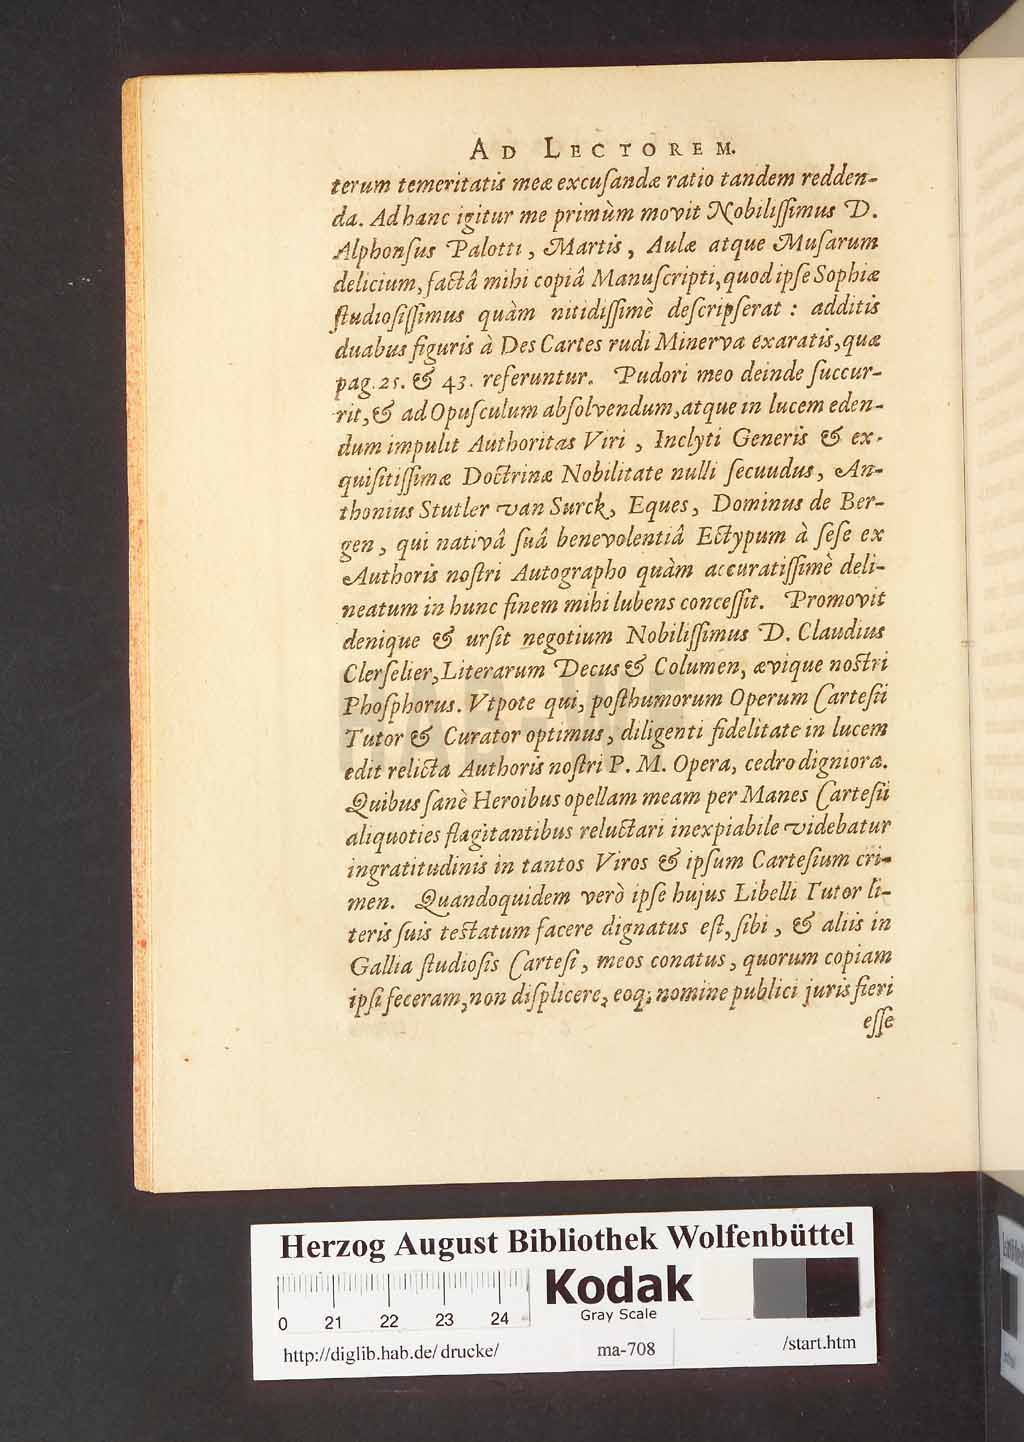 AD LECTOREM.
terum temeritatis meæ excuſandæ ratio tandem redden-
da. Ad hanc igitur me primùm movit Nobiliſſimus D.
Alphonſus Palotti, Martis, Aulæ atque Muſarum
delicium, factâ mihi copiâ Manuſcripti, quod ipſe Sophiæ
ſtudioſiſſimus quàm nitidiſſimè deſcripſerat: additis
duabus figuris à Des Cartes rudi Minerva exaratis, quæ
pag. 25. & 43. referuntur. Pudori meo deinde ſuccur-
rit, & ad Opuſculum abſolvendum, atque in lucem eden-
dum impulit Authoritas Viri, Inclyti Generis & ex-
quiſitiſſimæ Doctrinæ Nobilitate nulli ſecuudus, An-
thonius Stutler van Surck, Eques, Dominus de Ber-
gen, qui nativâ ſuâ benevolentiâ Ectypum à ſeſe ex
Authoris noſtri Autographo quàm accuratiſſimè deli-
neatum in hunc finem mihi lubens conceſſit. Promovit
denique & urſit negotium Nobiliſſimus D. Claudius
Clerſelier, Literarum Decus & Columen, ævique noſtri
Phoſphorus. Vtpote qui, poſthumorum Operum Carteſii
Tutor & Curator optimus, diligenti fidelitate in lucem
edit relicta Authoris noſtri P. M. Opera, cedro digniora.
Quibus ſanè Heroibus opellam meam per Manes Carteſii
aliquoties flagitantibus reluctari inexpiabile videbatur
ingratitudinis in tantos Viros & ipſum Carteſium cri-
men. Quandoquidem verò ipſe hujus Libelli Tutor li-
teris ſuis teſtatum facere dignatus eſt, ſibi, & aliis in
Gallia ſtudioſis Carteſi, meos conatus, quorum copiam
ipſi feceram, non diſplicere, eoq; nomine publici juris fieri
eſſe
Herzog August Bibliothek Wolfenbüttel
Kodak
Gray Scale
0 21 22 23 24
http://diglib.hab.de/drucke/ ma-708 /start.htm